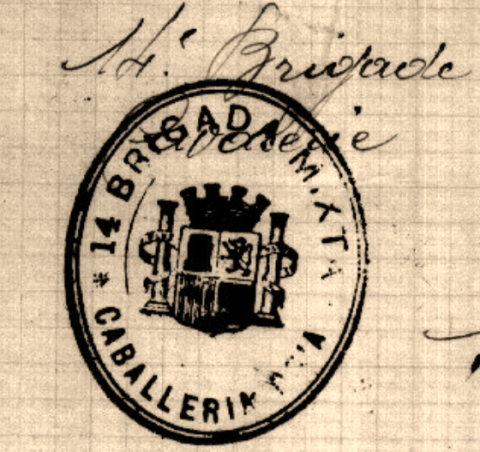 14.e Brigade
Cavalerie
14 BRIGADA MIXTA
* CABALLERIA